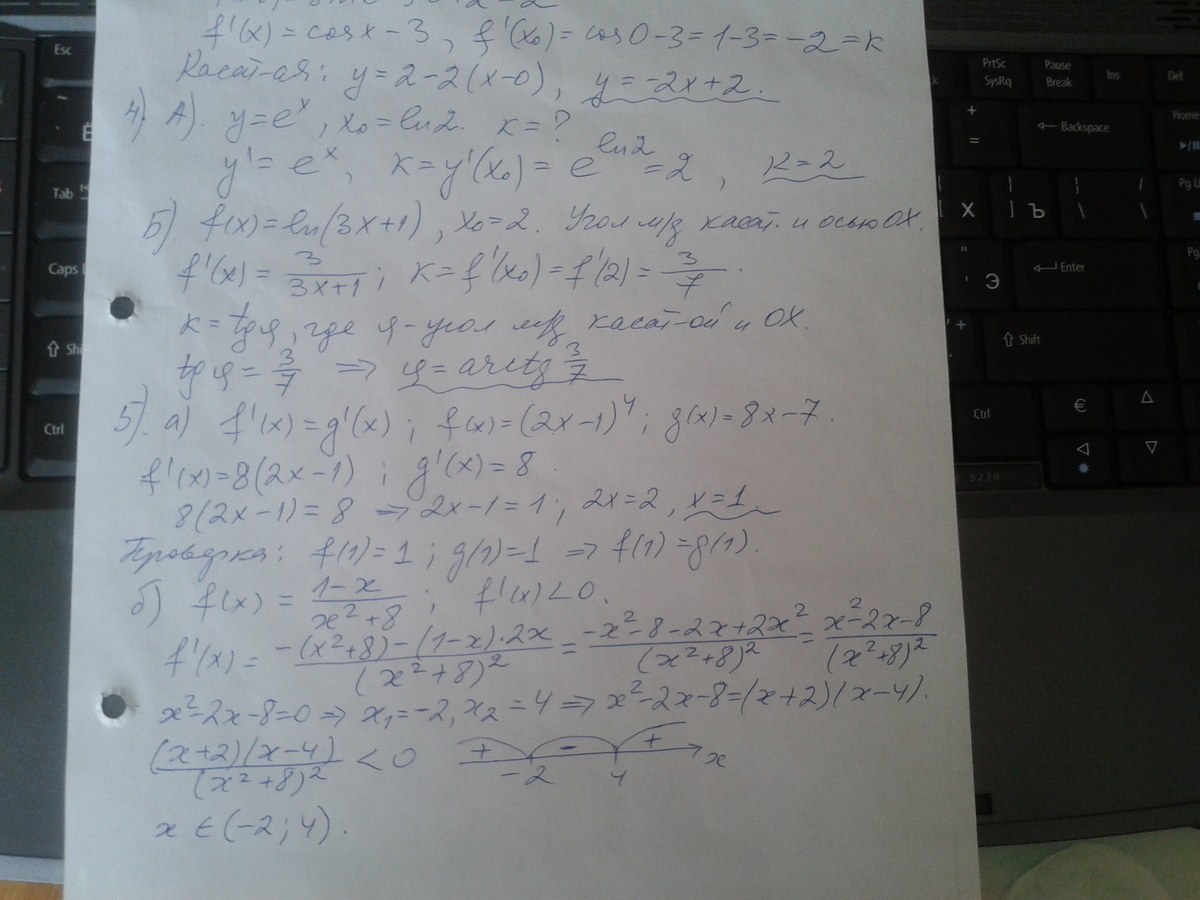 f'(x) = cosx - 3, f'(x₀) = cos0 - 3 = 1 - 3 = -2 = к
Касат-ая: y = 2 - 2(x - 0), y = -2x + 2.
4) А). y = eˣ, x₀ = ln2. к = ?
y' = eˣ, к = y'(x₀) = e^ln2 = 2, к = 2
Б). f(x) = ln(3x+1), x₀ = 2. Угол м/д касат. и осью OX.
f'(x) = 3/(3x+1); к = f'(x₀) = f'(2) = 3/7.
к = tg φ, где φ - угол м/д касат-ой и OX.
tg φ = 3/7 ⇒ φ = arctg 3/7
5). а) f'(x) = g'(x); f(x) = (2x-1)⁴; g(x) = 8x - 7.
f'(x) = 8(2x-1); g'(x) = 8.
8(2x-1) = 8 ⇒ 2x-1 = 1; 2x = 2, x = 1.
Проверка: f(1) = 1; g(1) = 1 ⇒ f(1) = g(1).
б) f(x) = (1-x)/(x²+8); f'(x) < 0.
f'(x) = (-(x²+8) - (1-x)·2x)/(x²+8)² = (-x²-8-2x+2x²)/(x²+8)² = (x²-2x-8)/(x²+8)²
x²-2x-8 = 0 ⇒ x₁ = -2, x₂ = 4 ⇒ x²-2x-8 = (x+2)(x-4).
(x+2)(x-4)/(x²+8)² < 0 + - + -2 4 x
x ∈ (-2; 4).
Esc
Tab
Caps L
Shi
Ctrl
PrtSc
SysRq
Pause
Break
Ins
Del
+
=
Backspace
Home
Х
}
]
Ъ
|
/
\
\
Pg U
"
'
Э
Enter
Shift
Ctrl
€
5230